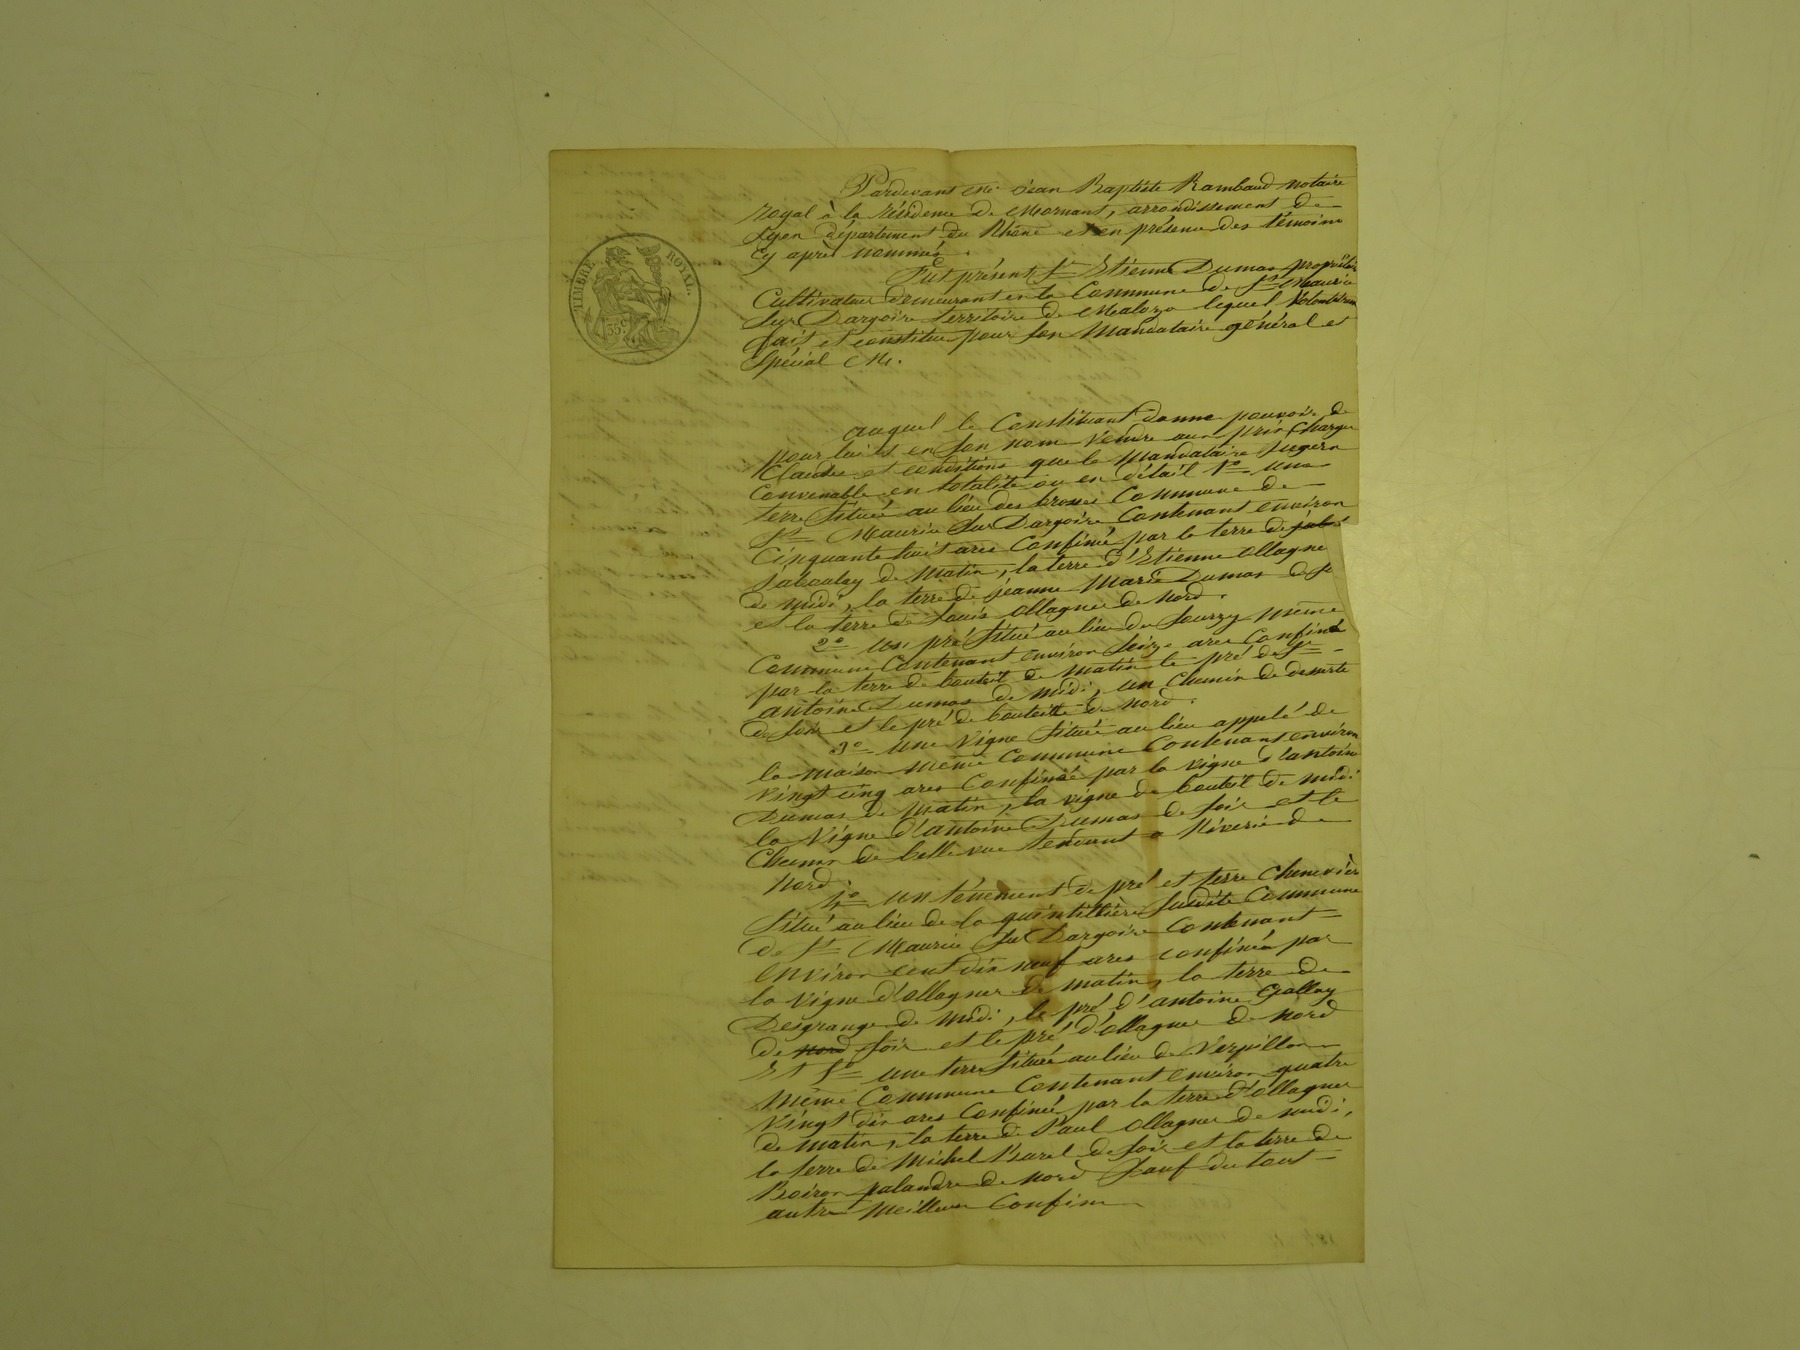 TIMBRE ROYAL.
35 c
Pardevant Me Jean Baptiste Rambaud Notaire
royal à la résidence de Mornant, arrondissement de
Lyon département du Rhône et en présence des témoins
cy après nommés.
Fut présent Sr Etienne Dumas propriétaire
Cultivateur demeurant en la Commune de St Maurice
Sur Dargoire territoire de lequel
fait et constitue pour son Mandataire général et
Spécial Mr.
auquel le Constituant donne pouvoir de
pour lui et en son nom Vendre aux prix Charges
Clauses et conditions que le Mandataire jugera
Convenable en totalité ou en détail 1o une
terre Située au lieu des brosses Commune de
St Maurice Sur Dargoire Contenant environ
Cinquante huit ares Confinée par la terre de
Jaboulay de Matin, la terre d'Etienne Ollagne
de midi, la terre de jeanne Marie Dumas de
et la terre de Louis Ollagne de Nord.
2o un pré Situé au lieu du même
Commune Contenant environ Seize ares Confiné
par la terre de bouteil de matin le pré de Sr
antoine Dumas de midi, un Chemin de desserte
de Soir et le pré de bouteille de Nord.
3o une Vigne Située au lieu appelé de
la maison même Commune Contenant environ
Vingt cinq ares Confinée par la vigne d'antoine
Dumas de Matin, la vigne de bouteil de midi
la Vigne d'antoine Dumas de Soir et le
Chemin de belle vue tendant a Riverie de
Nord
4o un ténement de pré et terre Chenevier
Situé au lieu de la quintillière Susdite Commune
de St Maurice Sur Dargoire Contenant
environ cent dix neuf ares confiné par
la vigne d'Ollagner de matin, la terre de
Desgrange de midi, le pré d'antoine Gallay
de nord Soir et le pré d'Ollagne de Nord
Et 5o une terre Située au lieu de Verpillon
même Commune Contenant environ quatre
Vingt dix ares Confinée par la terre d'Ollagner
de matin, la terre de Paul Ollagne de midi,
la terre de Michel de Soir et la terre de
Boiron palandre de Nord Sauf du tout
autre Meilleur Confin